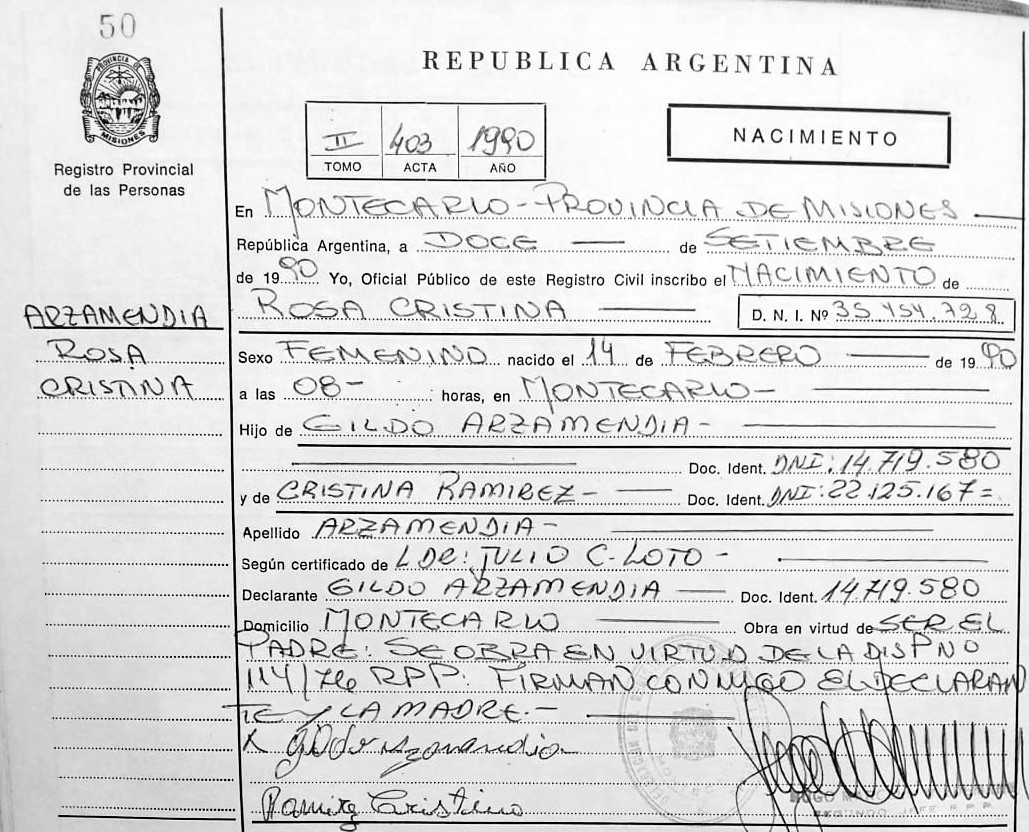 50
REPUBLICA ARGENTINA
PROVINCIA DE
MISIONES
Registro Provincial
de las Personas
II 403 1990
TOMO ACTA AÑO
NACIMIENTO
En MONTECARLO - PROVINCIA DE MISIONES
República Argentina, a DOCE de SETIEMBRE
de 1990 Yo, Oficial Público de este Registro Civil inscribo el NACIMIENTO de
ROSA CRISTINA D. N. I. Nº 35.454.728
ARZAMENDIA
ROSA
CRISTINA
Sexo FEMENINO nacido el 14 de FEBRERO de 1990
a las 08- horas, en MONTECARLO-
Hijo de GILDO ARZAMENDIA-
Doc. Ident. DNI: 14.719.580
y de CRISTINA RAMIREZ- Doc. Ident. DNI: 22.125.167=
Apellido ARZAMENDIA-
Según certificado de JULIO C. LOTO -
Declarante GILDO ARZAMENDIA Doc. Ident. 14.719.580
Domicilio MONTECARLO Obra en virtud de SER EL
PADRE: SE OBRA EN VIRTUD DE LA DISP Nº
114/76 RPP. FIRMAN CONMIGO EL DECLARAN
TE Y LA MADRE.-
X Gildo Arzamendia
Ramirez Cristina
HUGO
SEGUNDO JEFE R.P.P.